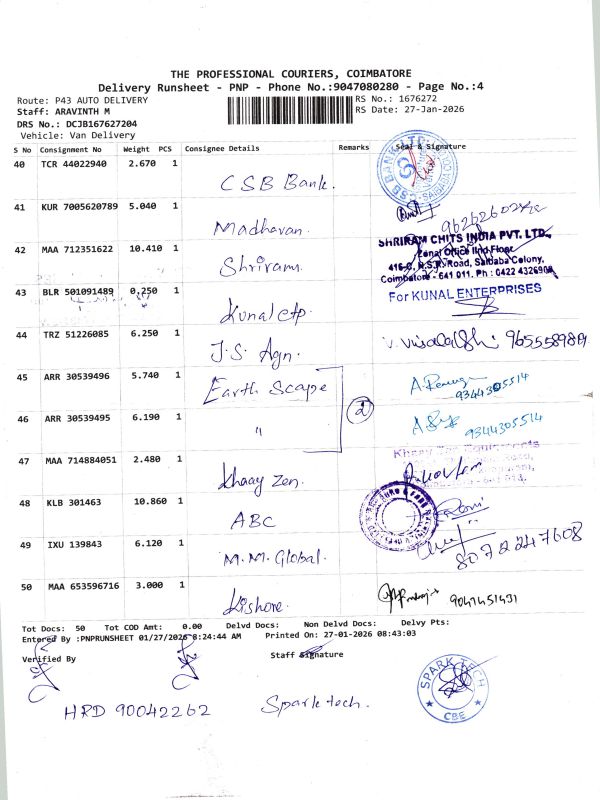 THE PROFESSIONAL COURIERS, COIMBATORE
Delivery Runsheet - PNP - Phone No.:9047080280 - Page No.:4
Route: P43 AUTO DELIVERY
RS No.: 1676272
Staff: ARAVINTH M
RS Date: 27-Jan-2026
DRS No.: DCJB167627204
Vehicle: Van Delivery
S No Consignment No Weight PCS Consignee Details Remarks Seal & Signature
40 TCR 44022940 2.670 1 CSB Bank.
41 KUR 7005620789 5.040 1 Madhavan.
42 MAA 712351622 10.410 1 Shriram
SHRIRAM CHITS INDIA PVT. LTD.,
Zonal Office IInd Floor,
416-C, N.S.R. Road, Saibaba Colony,
Coimbatore - 641 011. Ph : 0422 4326909
43 BLR 501091489 0.250 1 Kunal etp.
For KUNAL ENTERPRISES
44 TRZ 51226085 6.250 1 J.S. Agn.
45 ARR 30539496 5.740 1 Earth Scape
9344305514
46 ARR 30539495 6.190 1 "
9344305514
47 MAA 714884051 2.480 1 Khaay Zen.
48 KLB 301463 10.860 1 ABC
49 IXU 139843 6.120 1 M.M. Global.
8072247608
50 MAA 653596716 3.000 1 Kishore.
9041451431
Tot Docs: 50 Tot COD Amt: 0.00 Delvd Docs: Non Delvd Docs: Delvy Pts:
Entered By :PNPRUNSHEET 01/27/2026 8:24:44 AM Printed On: 27-01-2026 08:43:03
Verified By Staff Signature
HRD 90042262 Spark tech.
SPARK TECH
CBE